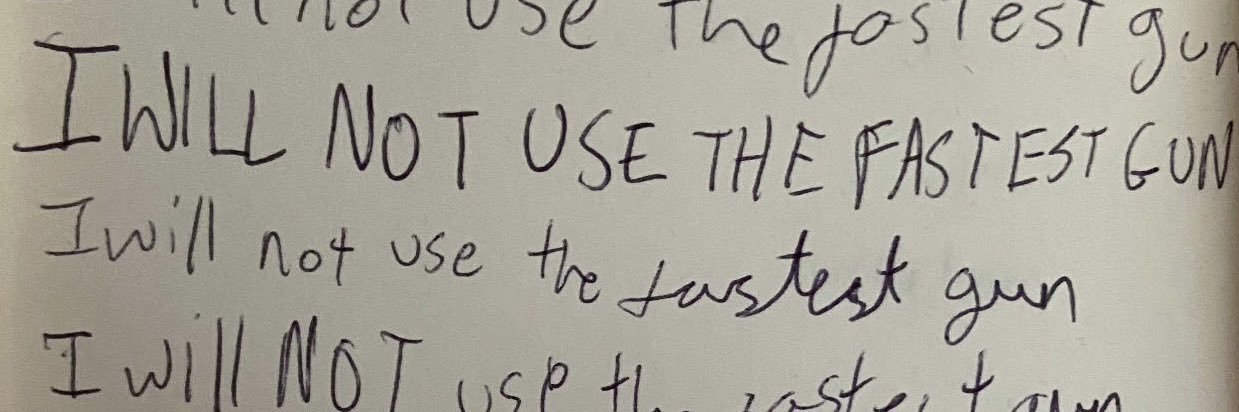 not use the fastest gun
I WILL NOT USE THE FASTEST GUN
I will not use the fastest gun
I will NOT use the fastest gun